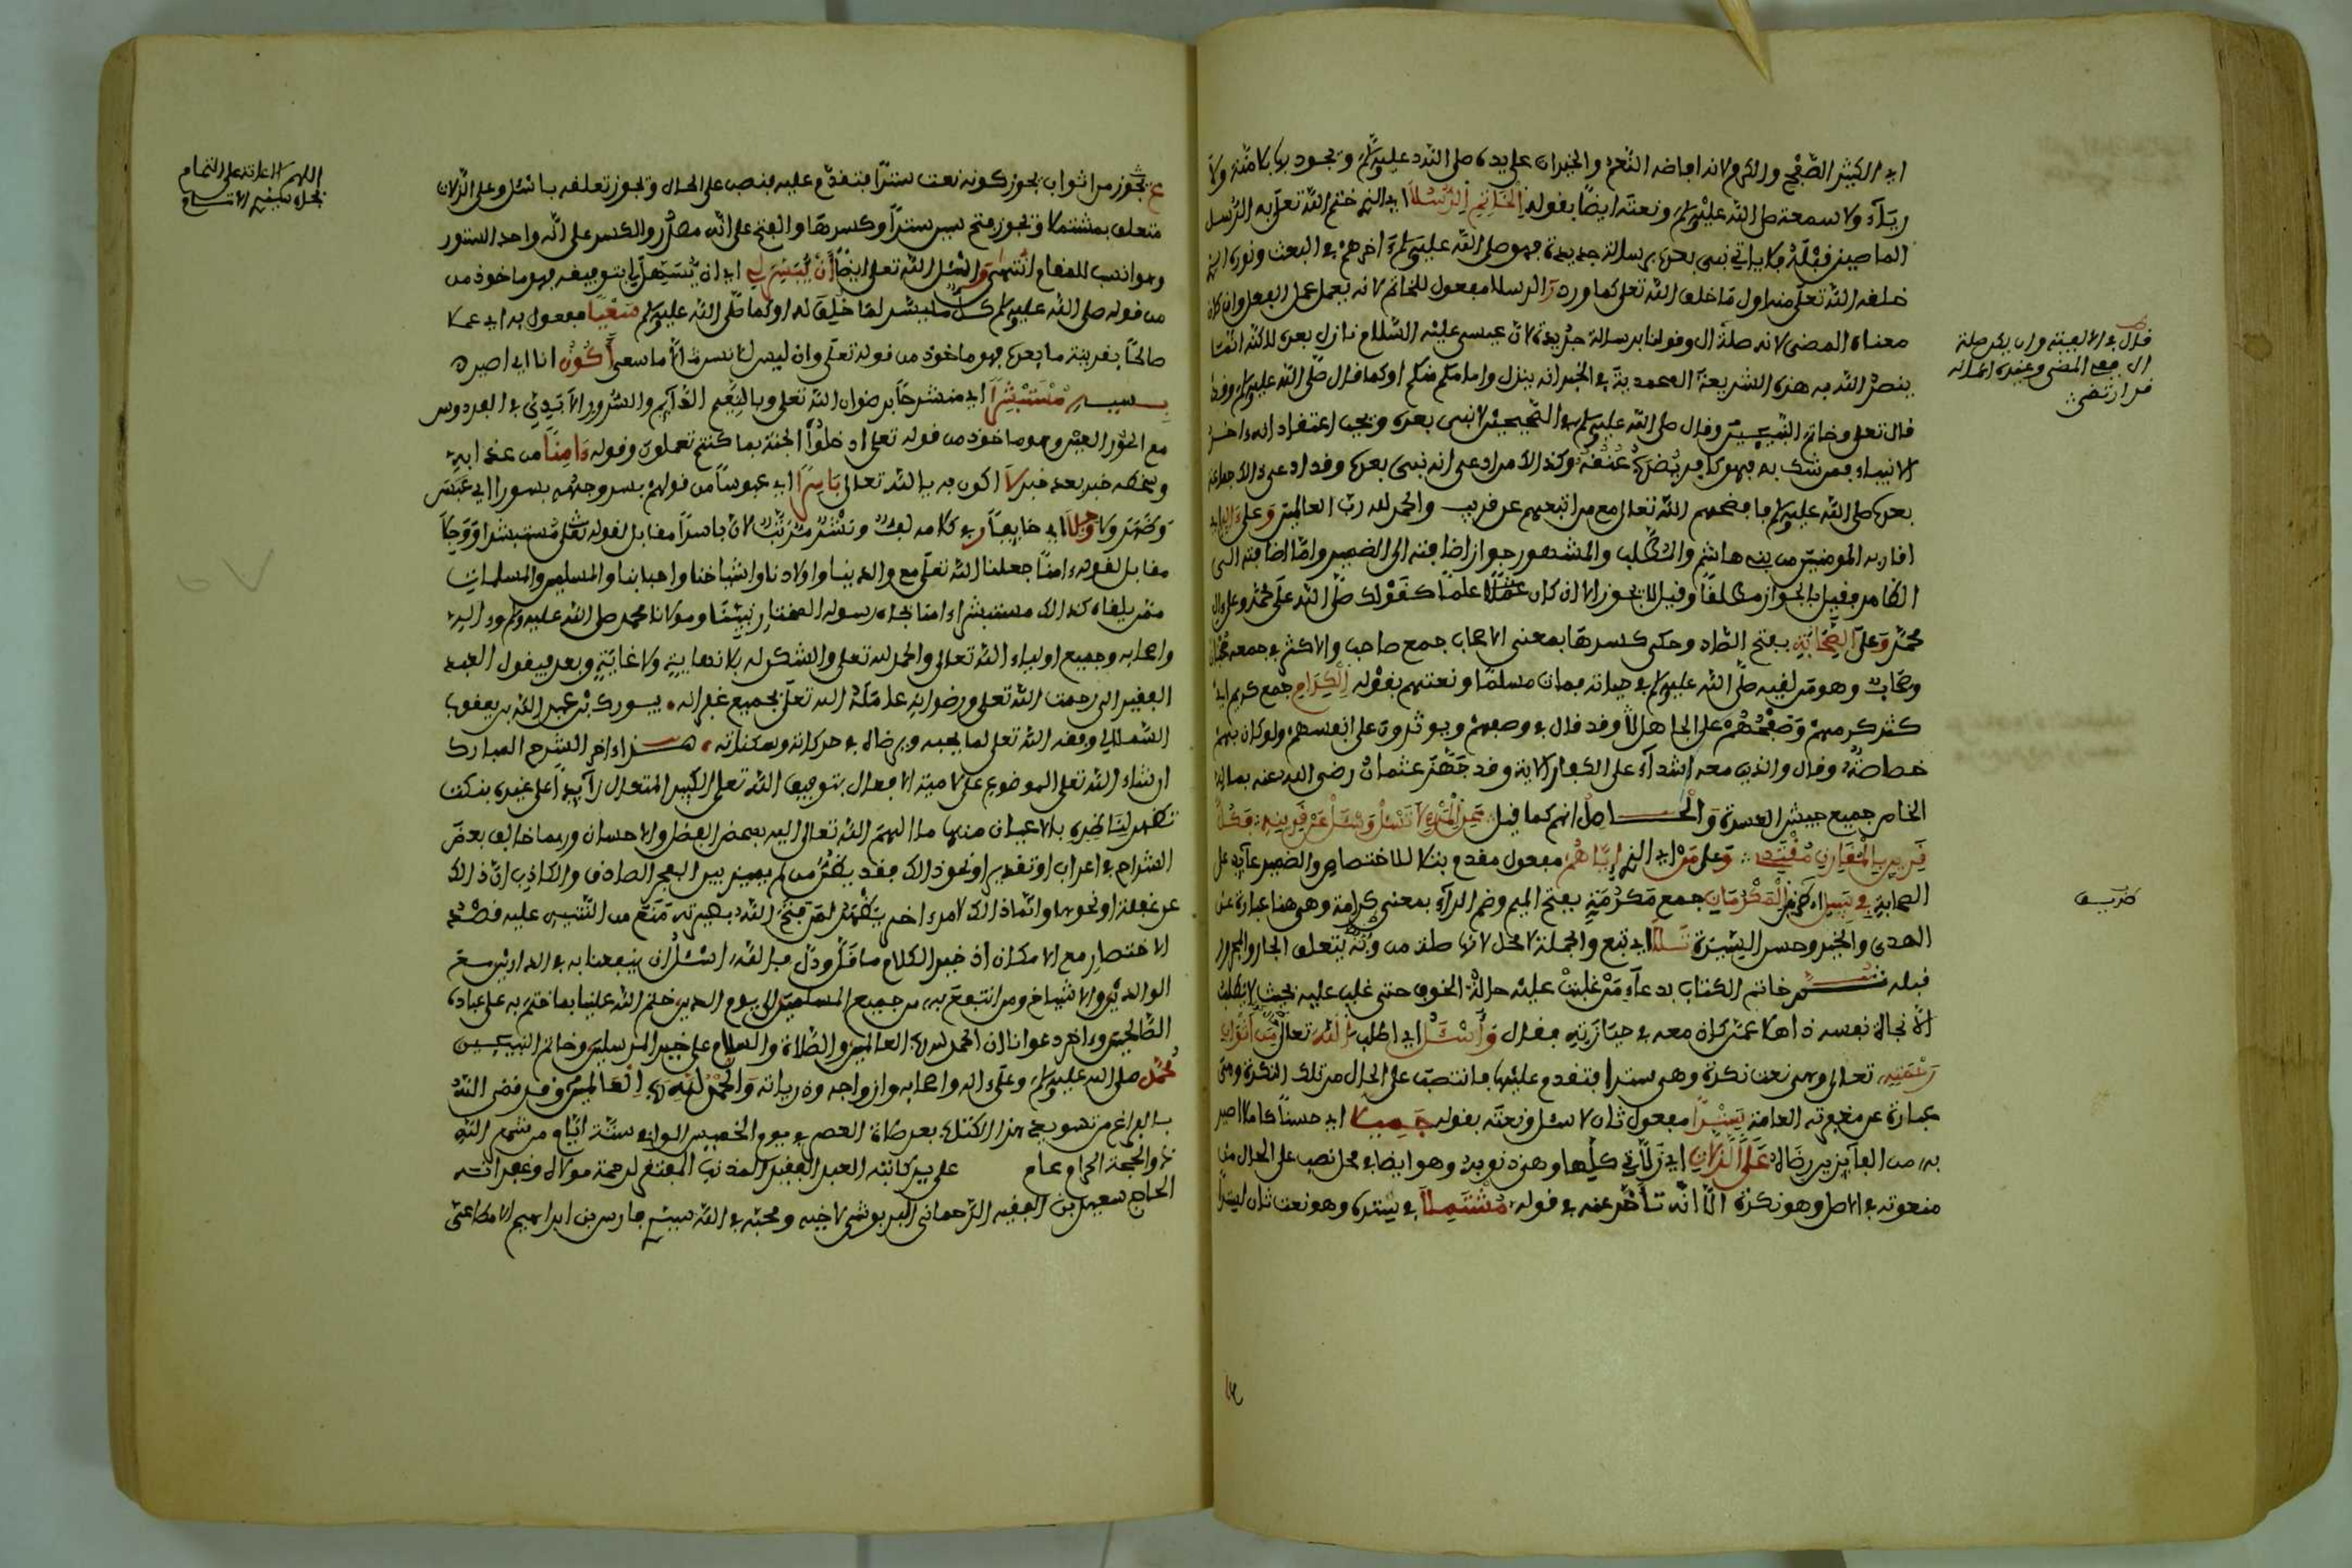 اي الكثير الصفح والكرم لانه افاضه النعم والخيران على يده صلى الله عليه وسلم ويجود بها بلا منة ولا
رياء ولا سمعة صلى الله عليه وسلم ونعته ايضا بقوله الخاتم الرسلا اي الذي ختم الله تعلى به الرسل
الماضين قبله فلا ياتي نبي بعده برسالة جديدة فهو صلى الله عليه وسلم ءاخرهم في البعث ونوره الذي
خلفه الله تعلى منه اول ما خلق الله تعلى كما ورد والرسلا مفعول للخاتم لانه يعمل عمل الفعل وان كان
معناه المضي لانه صلة ال وقولنا برسالة جديدة لان عيسى عليه السلام نازل بعده لاكنه انما
ينصر الله به هذه الشريعة المحمدية في الخبر انه ينزل وامامكم منكم او كما قال صلى الله عليه وسلم وقد
قال تعلى وخاتم النبيين وقال صلى الله عليه وسلم في الصحيحين لا نبي بعدي ويجب اعتقاد انه ءاخر
الانبياء فمن شك به فهو كافر يضرب عنقه وكذا الامر ادعى انه نبي بعده وقد ادعى ذالك جماعة
بعده صلى الله عليه وسلم فافضحهم الله تعالى مع من اتبعهم عن قريب والحمد لله رب العالمين وعلى ءاله اي
اقاربه المومنين من بني هاشم والمطلب والمشهور جواز اضافته الى الضمير واما اضافته الى
الظاهر فقيل بالجواز مطلقا وقيل لا يجوز الا ان كان علما كقولك صلى الله على محمد وعلى ءال
محمد وعلى الصحابة بفتح الصاد وحكي كسرها بمعنى الاصحاب جمع صاحب والاكثر في جمعه صحب
وصحابة وهو من لقيه صلى الله عليه وسلم في حياته فمات مسلما ونعتهم بقوله الكرام جمع كريم اي
كثر كرمهم وصفحهم على الجاهل وقد قال في وصفهم ويوثرون على انفسهم ولو كان بهم
خصاصة وقال والذين معه اشداء على الكفار الاية وقد جهز عثمان رضي الله عنه بماله
الخاص جميع جيش العسرة والحاصل انهم كما قيل عن المرء لا تسئل وسل عن قرينه فكل
قرين بالمقارن مقتد وعلى من اي الذي اياهم مفعول مقدم بتلا للاختصاص والضمير عايد على
الصحابة في سبل المكرمات جمع مكرمة بفتح الميم وضم الراء بمعنى كرامة وهي هنا عبارة عن
الهدى والخير وحسن السيرة تلا اي تبع والجملة لا محل لانها صلة من وبه يتعلق الجار والمجرور
قبله ثم ختم الكتاب بدعاء من غلبت عليه حالة الخوف حتى غلب عليه بحيث لا يطلب
الا نجاة نفسه ذاهلا عمن كان معه في حيازته فقال واسئل اي اطلب الله تعالى من اثواب
رحمته تعالى وهي نعت نكرة وهي سترا فتقدم عليها فانتصب على الحال من تلك النكرة وهي
عبارة عن مغفرته العامة سترا مفعول ثان لاسئل ونعته بقوله جميلا اي حسنا كاملا اصير
به من الفايزين برضاه على الزلات اي زلاتي كلها وهذه نوبة وهو ايضا في محل نصب على الحال من
منعوته في الاصل وهو نكرة الا انه تاخر عنه في قوله مشتملا في ستره وهو نعت ثان لسترا
قال في الالفية وان يكن صلة
ال ففي المضي وغيره اعماله
قد ارتضي
ظريف
يجوز من اثواب يجوز كونه نعت سترا فتقدم عليه فنصب على الحال ويجوز تعلقه باسئل وعلى الزلات
متعلق بمشتملا ويجوز فتح سين سترا وكسرها والفتح على انه مصدر والكسر على انه واحد الستور
وهو انسب للمقام انتهى واسئل الله تعلى ايضا ان ييسر لي اي ان يسهل لي بتوفيقه فهو ماخوذ من
من قوله صلى الله عليه وسلم كل ميسر لما خلق له او كما صلى الله عليه وسلم سعيا مفعول به اي عملا
صالحا بقرينة ما بعده فهو ماخوذ من قوله تعلى وان ليس للانسان الا ما سعى اكون انا اي اصير
بسببه مستبشرا اي منشرحا برضوان الله تعلى وبالنعيم الدايم والسرور الابدي في الفردوس
مع الحور العين وهو ماخوذ من قوله تعلى ادخلوا الجنة بما كنتم تعملون وقوله ءامنا من عذابه
وسخطه خبر بعد خبر لا اكون به يا الله تعالى باسرا اي عبوسا من قولهم بسر وجهه بسورا اي عبس
وكهر ولا وجلا اي خايفا وفي كلامه لف ونشر مرتب لان باسرا مقابل لقوله تعلى مستبشرا ووجلا
مقابل لقوله ءامنا جعلنا الله تعلى مع والدينا واولادنا واشياخنا واحبابنا والمسلمين والمسلمات
ممن يلقاه كذالك مستبشرا ءامنا بجاه رسوله المختار نبينا ومولانا محمد صلى الله عليه وسلم وءاله
واصحابه وجميع اولياء الله تعالى والحمد لله تعلى والشكر له بلا نهاية ولا غاية وبعد فيقول العبد
الفقير الى رحمت الله تعلى ورضوانه عامله الله تعلى بجميع غفرانه يبورك بن عبد الله بن يعقوب
السملالي وفقه الله تعلى لما يحبه ويرضاه في حركاته وسكناته هذا ءاخر الشرح المبارك
ان شاء الله تعلى الموضوع على لامية الافعال بتوفيق الله تعلى الكبير المتعال زايدا على غيره بنكت
تظهر لناظره بالاعيان منها ما الهم الله تعالى اليه بمحض الفضل والاحسان وربما خالف بعض
الشراح في اعراب او تقديم او نحو ذالك فقد يظن من لم يميز بين الفجر الصادق والكاذب ان ذالك
عن غفلة او نحوها وانما ذالك لامر ءاخر يظهر لمن فتح الله بصيرته منع من التنبيه عليه قصد
الاختصار مع الامكان اذ خير الكلام ما قل ودل فالله اسئل ان ينفعنا به في الدارين مع
الوالدين والاشياخ ومن انتفع به من جميع المسلمين الى يوم الدين ختم الله علينا بما ختم به على عباده
الصالحين وءاخر دعوانا ان الحمد لله رب العالمين والصلاة والسلام على خير المرسلين وخاتم النبيين
محمد صلى الله عليه وسلم وعلى ءاله واصحابه وازواجه وذرياته والحمد لله رب العالمين وقد قضى الله
بالفراغ من تسويد هذا الكتاب بعد صلاة العصر في يوم الخميس الوافي ستة ايام من شهر الله
ذو الحجة الحرام عام على يد كاتبه العبد الفقير المذنب المفتقر لرحمة مولاه وغفرانه
الحاج سعيد بن الفقيه الرحماني البربوشي لاخيه ومحبه في الله سيدي فارس بن ابراهيم
اللهم